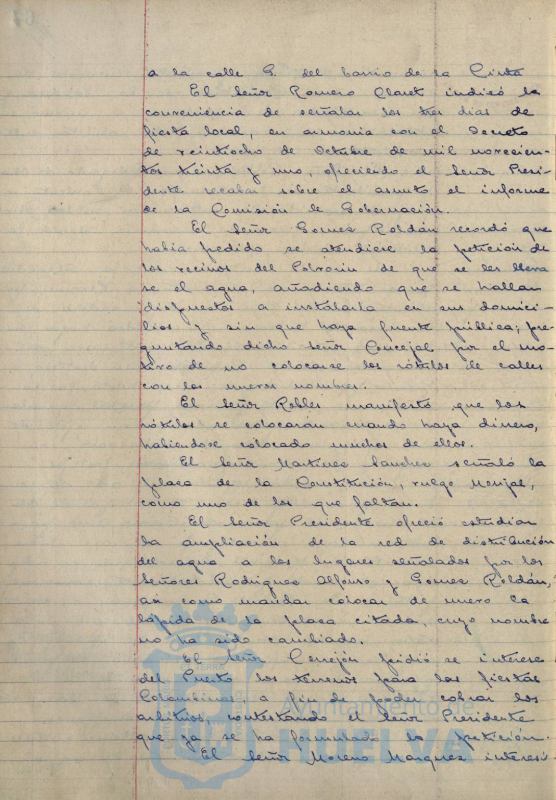 a la calle G. del barrio de la Cinta
El Señor Romero Claret indicó la
conveniencia de señalar los tres dias de
fiesta local, en armonia con el Decreto
de veintiocho de Octubre de mil novecien-
tos treinta y uno, ofreciendo el Señor Presi-
dente recabar sobre el asunto el informe
de la Comisión de Gobernación.
El Señor Gomez Roldán recordó que
habia pedido se atendiese la petición de
los vecinos del Polvorin de que se les lleva
se el agua, añadiendo que se hallan
dispuestos a instalarla en sus domici-
lios y sin que haya fuente pública; pre-
guntando dicho Señor Concejal por el mo-
tivo de no colocarse los rótulos de calles
con los nuevos nombres.
El Señor Robles manifestó que los
rótulos se colocarán cuando haya dinero,
habiendose colocado muchos de ellos.
El Señor Martinez Sanchez señaló la
plaza de la Constitución, vulgo Monjas,
como uno de los que faltan.
El Señor Presidente ofreció estudiar
la ampliación de la red de distribución
del agua a los lugares señalados por los
Señores Rodriguez Alfonso y Gomez Roldán,
asi como mandar colocar de nuevo la
lápida de la plaza citada, cuyo nombre
no ha sido cambiado.
El Señor Cerrejón pidió se interese
del Puerto los terrenos para las fiestas
Colombinas a fin de poder cobrar los
arbitrios, contestando el Señor Presidente
que ya se ha formulado la petición.
El Señor Moreno Marquez interes
Ayuntamiento de
HUELVA